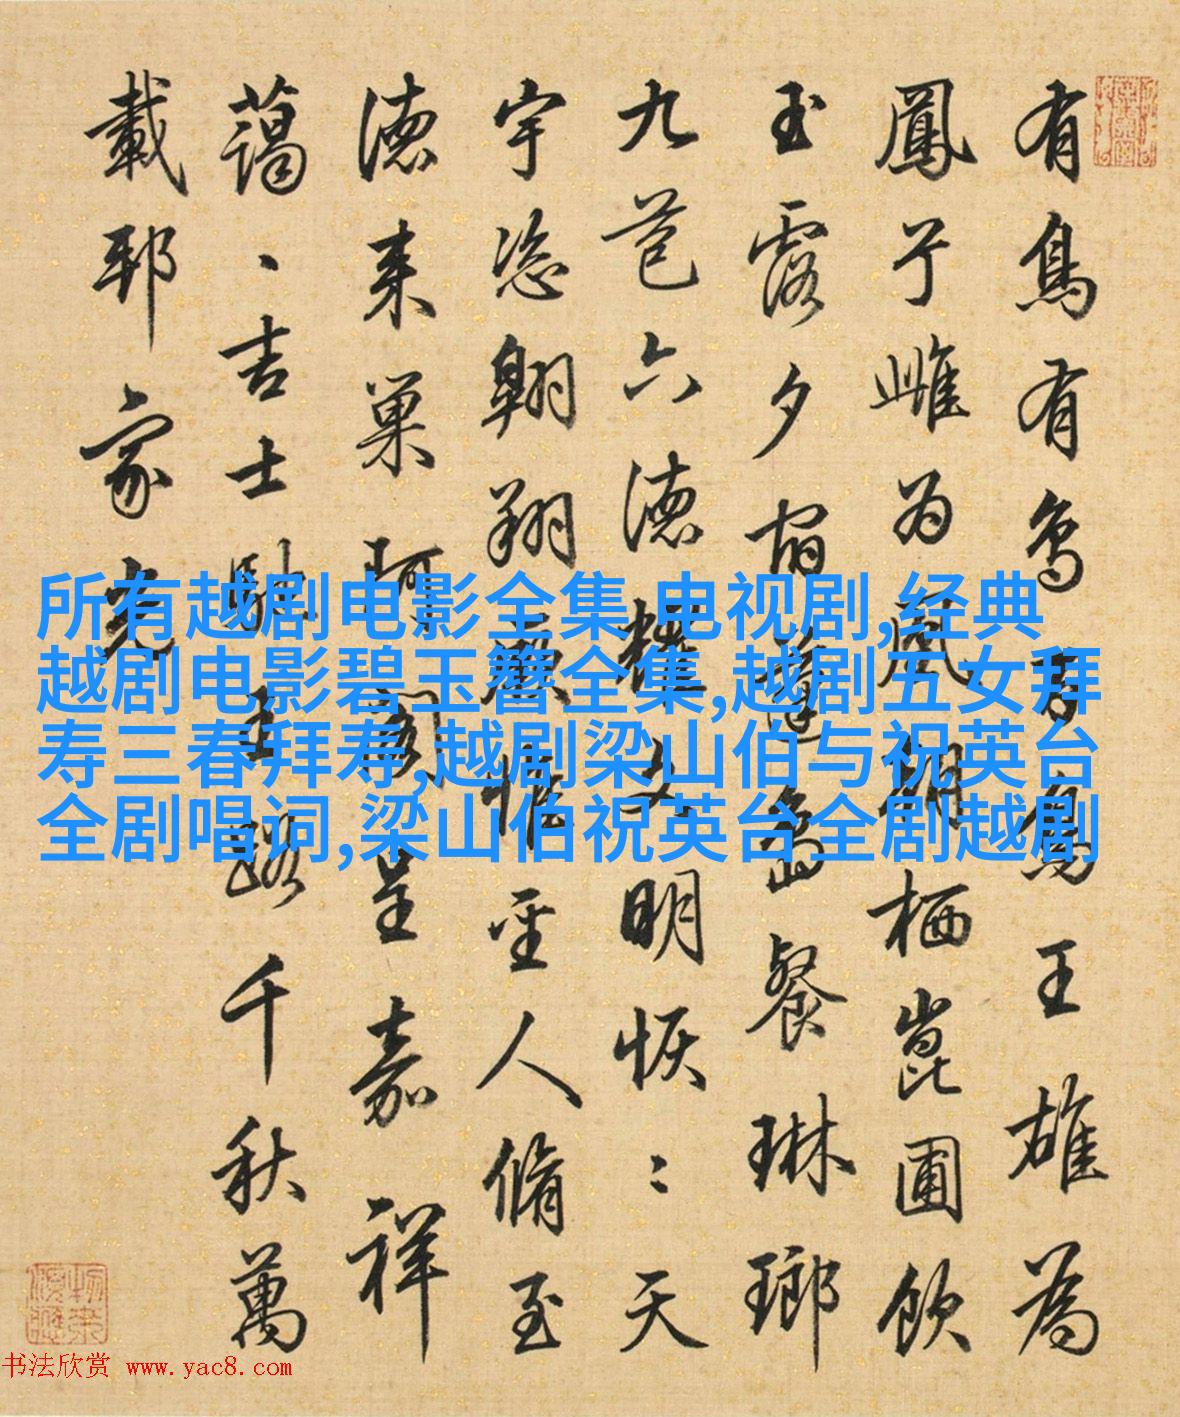 有鳥有鳥百鳥王雄為
鳳兮雌为凰朝栖崑圃飲
玉露夕宿蓬島餐琳瑯
九苞六德耀文明恢〻天
宇恣翱翔厥惟聖人脩至
德来巢阿閣呈嘉祥
藹〻吉士王路千秋萬
載邦家光
所有越剧电影全集 电视剧,经典
越剧电影碧玉簪全集,越剧五女拜
寿三春拜寿,越剧梁山伯与祝英台
全剧唱词,梁山伯祝英台全剧越剧
书法欣赏 www.yac8.com